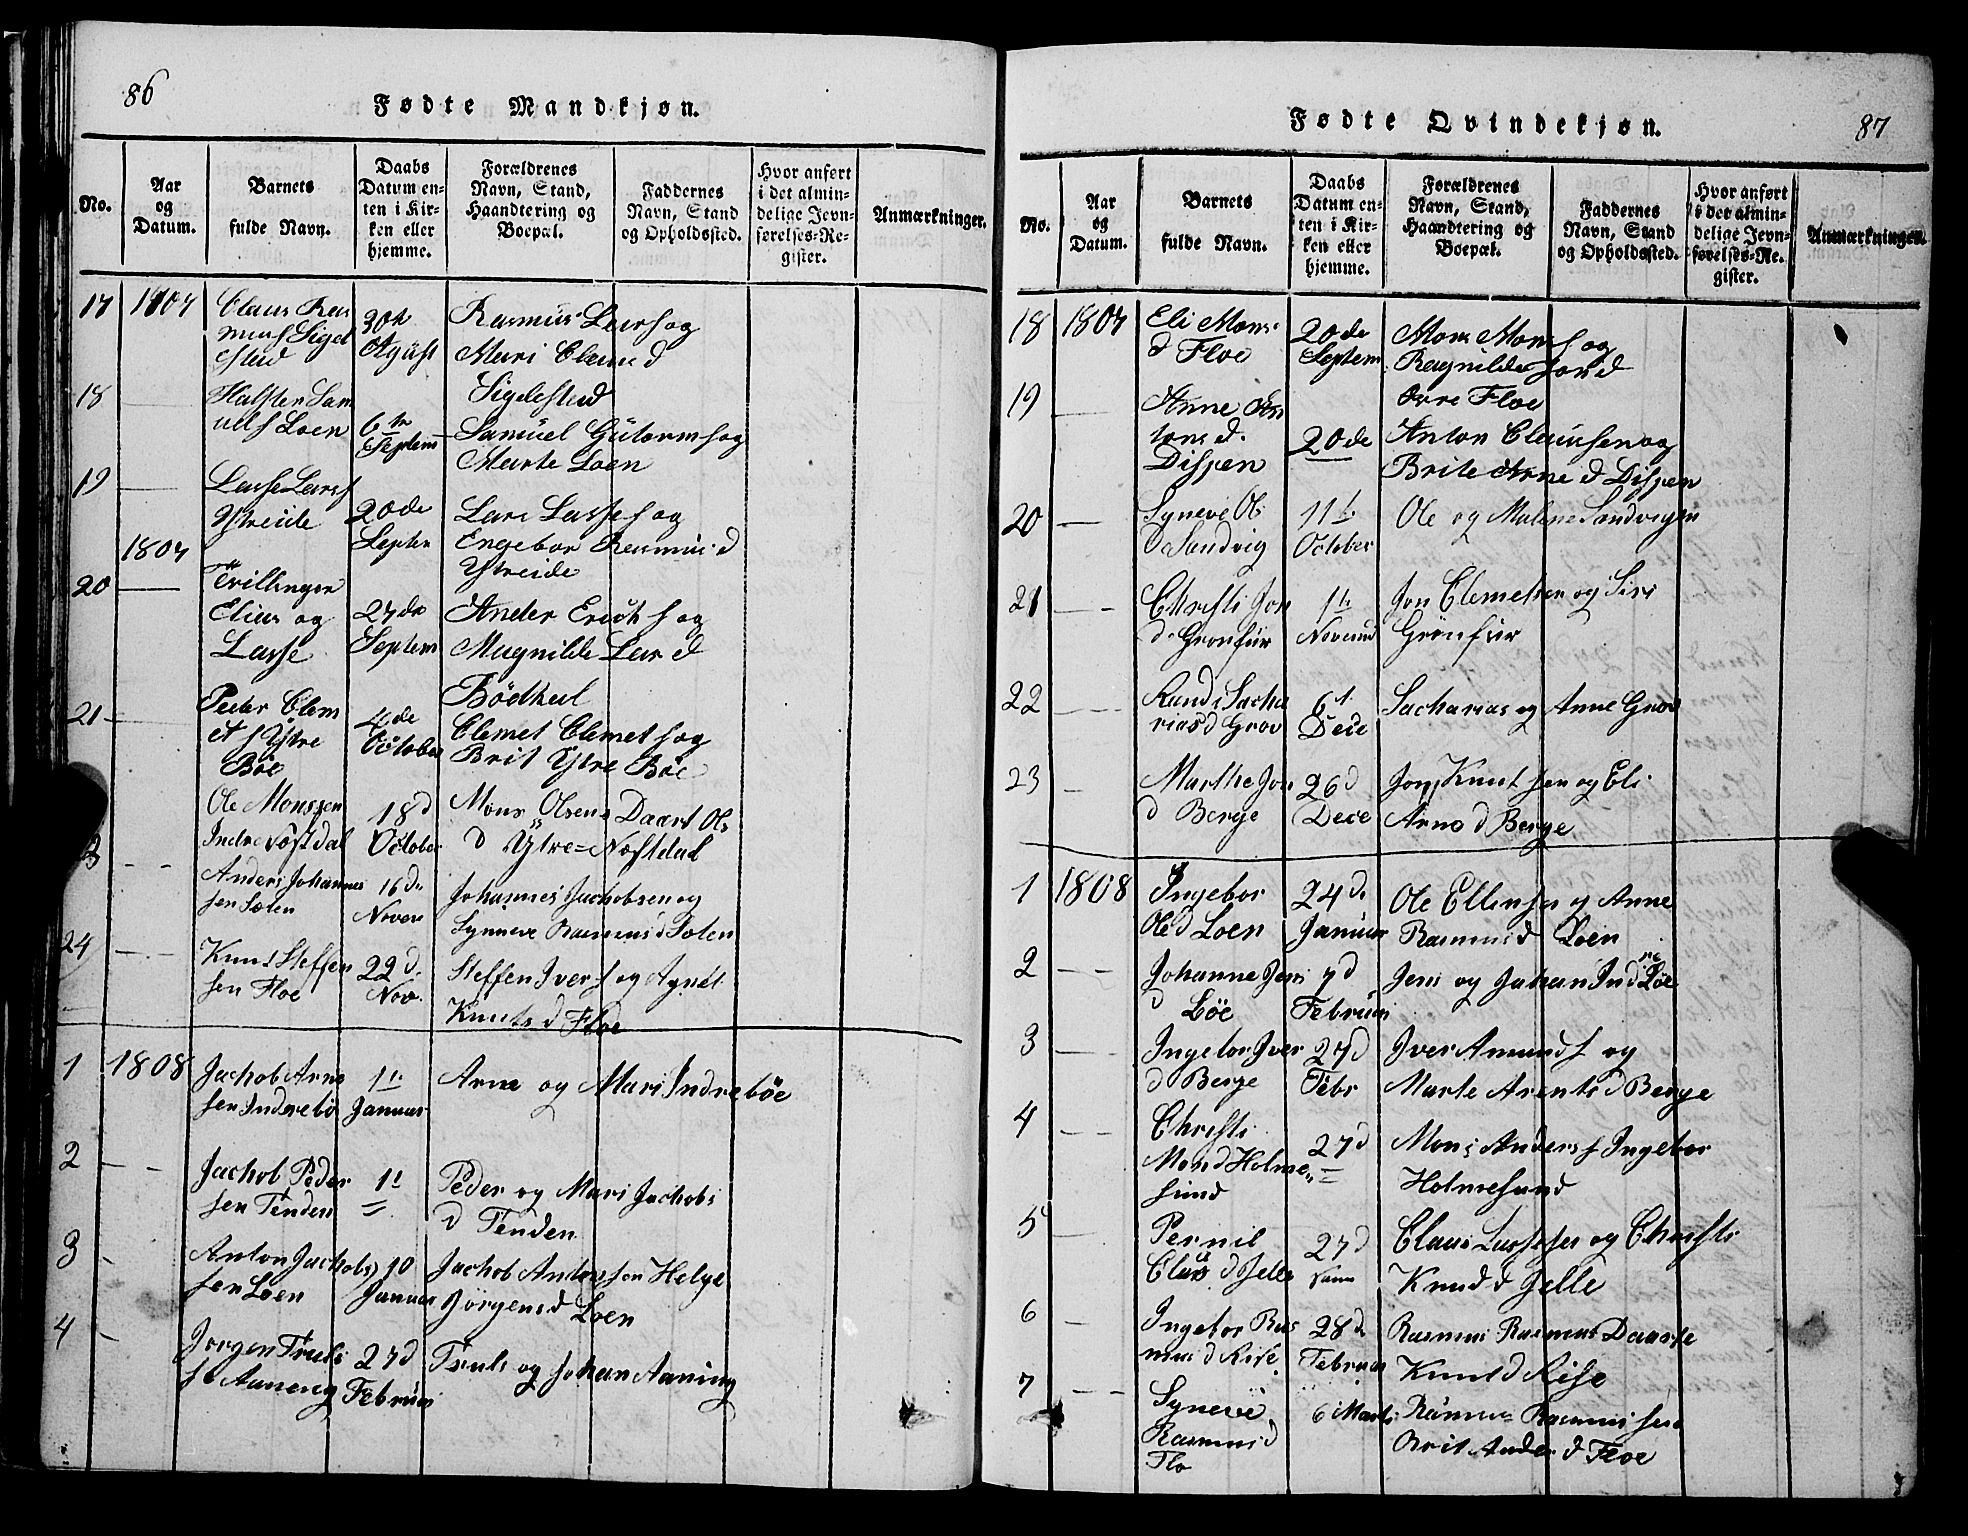 86
Fødte Mandkjøn.
No.
Aar
og
Datum.
Barnets
fulde Navn.
Daabs
Datum en-
ten i Kir-
ken eller
hjemme.
Forældrenes
Navn, Stand,
Haandtering og
Boepæl.
Faddernes
Navn, Stand
og Opholdssted.
Hvor anført
i det almin-
delige Jevn-
førelses-Re-
gister.
Anmærkninger.
17 1807 Claus Ras
mus Sigel
stad
30te
Agüst
Rasmus Lars og
Mari Claus d
Sigelstad
18
Halsten Sam
uels Loen
6te
Septem
Samüel Gütorms og
Marte Loen
19
Lasse Lars
Ytreide
20de
Septem
Lars Lasses og
Engebor Rasmus d
Ytreide
1807
20
Tvillinger
Elias og
Lasse
27de
Septem
Ander Erich s og
Magnilde Lar d
Bödkal
21
Peder Clem
et s Ytre
Böe
4de
October
Clemet Clemet s og
Brit Ytre Böe
Ole Monssen
Indre Nöstdal
18d
October
Mons Olsens Daart Ols
d Ytre=Nöstdal
Anders Johannes
sen Solen
16d
Novem
Johannes Jachobsen og
Synneve Rasmus d Solen
24
Knut Steffen
sen Floe
22d
Nov.
Steffen Iver s og Agnet
Knuts d Floe
1 1808 Jachob Arne
sen Indrebö
1t
Januar
Arne og Mari Indreböe
2
Jachob Peder
sen Tenden
1t
Peder og Mari Jachobs
d Tenden
3
Anton Jachobs
sen Loen
10
Januar
Jachob Antonsen Helge
Jörgens d Loen
4
Jörgen Truls
s Aaneng
27d
Februar
Truls og Johan Aaning
Fødte Qvindekjøn.
87
No.
Aar
og
Datum.
Barnets
fulde Navn.
Daabs
Datum en-
ten i Kir-
ken eller
hjemme.
Forældrenes
Navn, Stand,
Haandtering og
Boepæl.
Faddernes
Navn, Stand
og Opholdssted.
Hvor anført
i det almin-
delige Jevn-
førelses-Re-
gister.
Anmærkninger.
18 1807 Eli Mons
d Floe
20de
Septem
Mons Mons s og
Ragnilde Jon d
Övre Floe
19
Anne An
tons d.
Dispen
20de
Anton Claussen og
Brite Arne d Dispen
20
Syneve Ols
d Sandvig
11te
October
Ole og Malene Sandvigen
21
Christi Jon
d Grönfür
1te
Novemb
Jon Clemetsen og Siri
Grönfür
22
Randi Sacha
rias d Grov
6t
Dece
Sacharias og Anne Grov
23
Marthe Jon
d Berge
26d
Dece
Jon Knut sen og Eli
Arne d Berge
1 1808 Ingebor
Ole d Loen
24d
Januar
Ole Ellingsen og Anne
Rasmus d Loen
2
Johanne Jens
d Löe
7d
Februar
Jens og Johan Indre Löe
3
Ingebor Iver
d Berge
27d
Febr
Iver Amunds og
Marte Arents d Berge
4
Christi
Mon d Holme
sund
27d
Mons Anders s Ingebor
Holmesund
5
Pernil
Claus d Jelle
27d
Samme
Claus Lassesen og Christi
Knud d Gjelle
6
Ingebor Ras
mus d Rise
28d
Februar
Rasmus Rasmus Daarte
Knut d Rise
7
Syneve
Rasmus d
Flo
6 Marts
Rasmus Rasmus sen
Brit Ander d Floe